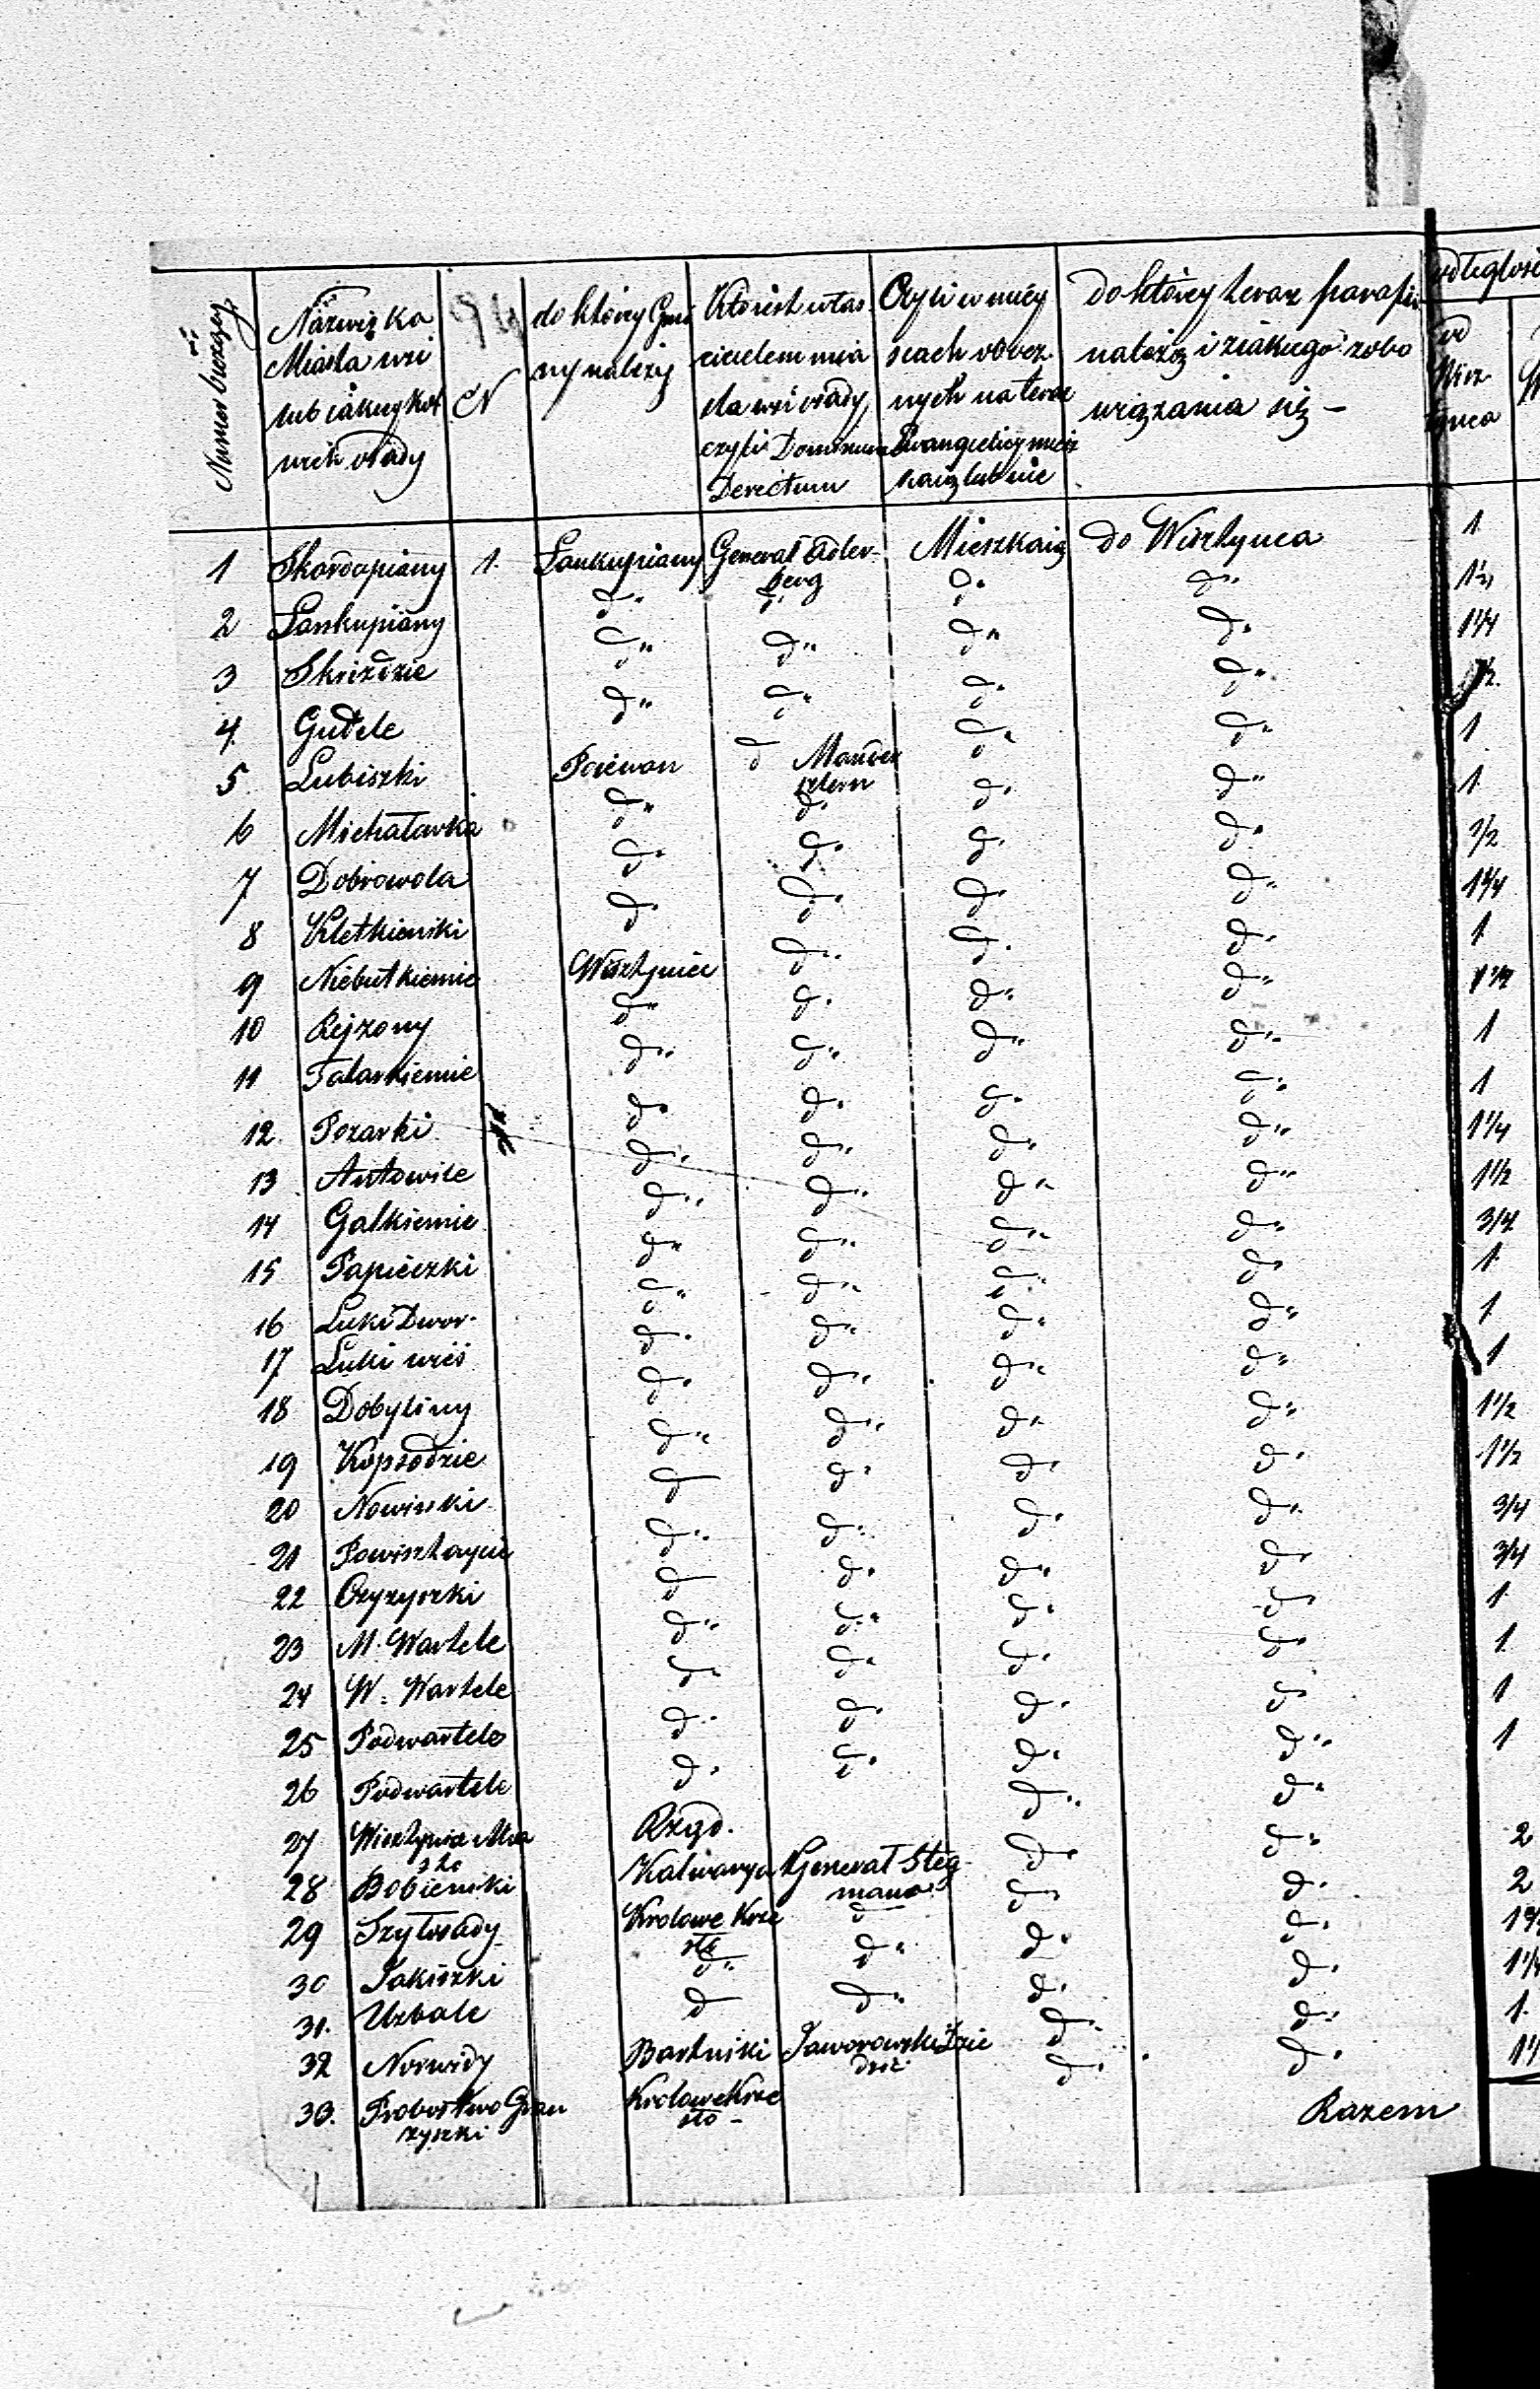 Numer bieżący
Nazwiska Miasta wsi lub iakieykol wiek osady
N
do którey Gmi ny należy
Kto iest włas cicielem mia sta wsi osady czyli Dominium Derectum
Czyli w miey scach obocz nych na teraz Ewangelicy miesz kaią lub nie
do którey teraz parafii należą i ziakiego zobo wiązania się –
odległość
od Wisz tyńca
1 Skordupiany 1. Lankupiany Generał Adler berg Mieszkaią do Wisztyńca 1
2 Lankupiany d° d° d° d° 1½
3 Skrizdzie d° d° d° d° 1¼
4 Gudele d° d° d° d° ½
5 Lubiszki Poiewon d° Mander sztern d° d° 1
6 Michałówka d° d° d° d° 1
7 Dobrowola d° d° d° d° ½
8 Kletkieniki d° d° d° d° 1¼
9 Niebutkiemie Wisztyniec d° d° d° 1
10 Rejzony d° d° d° d° 1½
11 Talarkiemie d° d° d° d° 1
12 Pozarki d° d° d° d° 1
13 Antowile d° d° d° d° 1¼
14 Galkiemie d° d° d° d° 1½
15 Papieczki d° d° d° d° 3/4
16 Luki Dwor d° d° d° d° 1
17 Luki wieś d° d° d° d° 1
18 Dobyliny d° d° d° d° 1
19 Kopsodzie d° d° d° d° 1½
20 Nowinki d° d° d° d° 1½
21 Powisztaycie d° d° d° d° 3/4
22 Czyzyszki d° d° d° d° 3/4
23 M. Wartele d° d° d° d° 1
24 W. Wartele d° d° d° d° 1
25 Podwartele d° d° d° d° 1
26 Podwartele d° d° d° d° 1
27 Wisztyniec Mia sto Rząd. d° d°
28 Bobieniki Kalwarya Generał Steg mann d° d° 2
29 Szyłosady Krolowe Krze sło d° d° d° 2
30 Jakiszki d° d° d° d°
31. Uzbale d d° d° d°
32 Norwidy Bartniki Jaworowski Dzie dzic d° d° 1
33. Probostwo Gra zyszki Krolowe Krze sło – d° d°
Razem